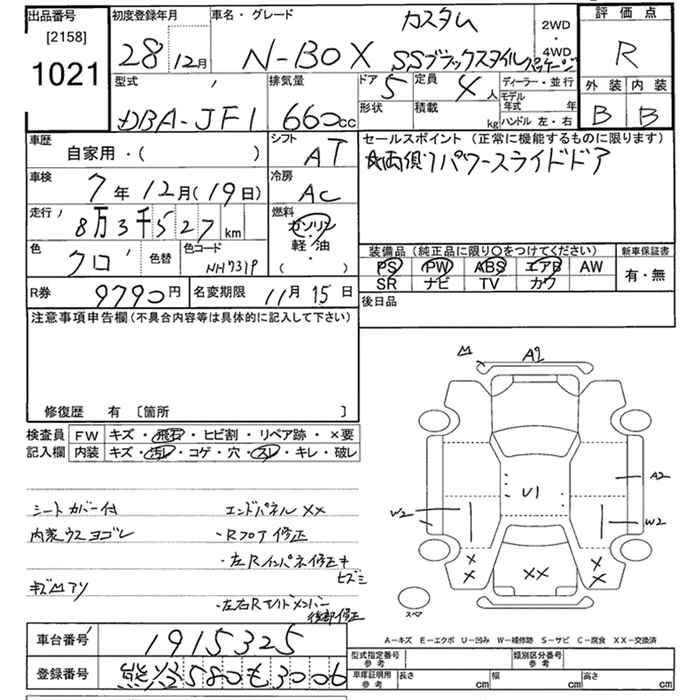 出品番号 初度登録年月 車名・グレード カスタム 2WD・4WD 評価点
[2158] 1021 28 12月 N-BOX SSブラックスタイルパッケージ R
型式 排気量 ドア 5 定員 4人 ディーラー・並行 外装 内装
DBA-JF1 660cc 形状 積載 kg モデル年式 年 B B
ハンドル 左・右
車歴 シフト セールスポイント (正常に機能するものに限ります)
自家用・( ) AT ★両側パワースライドドア
車検 7年12月(19日) 冷房 AC
走行 8万3千527km 燃料 ガソリン・軽油・( )
色 クロ 色替 色コード NH731P
装備品 (純正品に限り○をつけてください) 新車保証書
PS PW ABS エアB AW 有・無
SR ナビ TV カワ
R券 9790円 名変期限 11月15日 後日品
注意事項申告欄(不具合内容等は具体的に記入して下さい)
修復歴 有 〔箇所 〕
検査員記入欄 FW キズ・飛石・ヒビ割・リペア跡・×要
内装 キズ・汚レ・コゲ・穴・スレ・キレ・破レ
A2
U1
A2
W2
W2
XX
X X
X X
スペア
シートカバー付 エンドパネルXX
内装ウスヨゴレ ・Rフロア修正
・左Rインパネ修正キ
ヒズミ
・左右Rサイドメンバー
後部修正
A-キズ E-エクボ U-凹み W-補修跡 S-サビ C-腐食 XX-交換済
車台番号 1915325
型式指定番号 参考 類別区分番号 参考
登録番号 580も3006
車庫証明用 参考 長さ cm 幅 cm 高さ cm